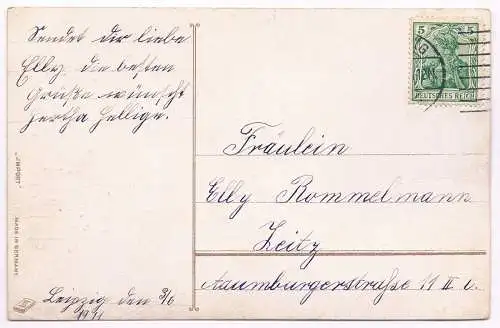 Sendet der liebe
Elly die besten
Grüße wünscht
Hertha Hellige.
Leipzig den 3/6
1911
"IMPORT"
MADE IN GERMANY
5 5
DEUTSCHES REICH
Fräulein
Elly Rommelmann
Zeitz
Naumburgerstraße 11 II